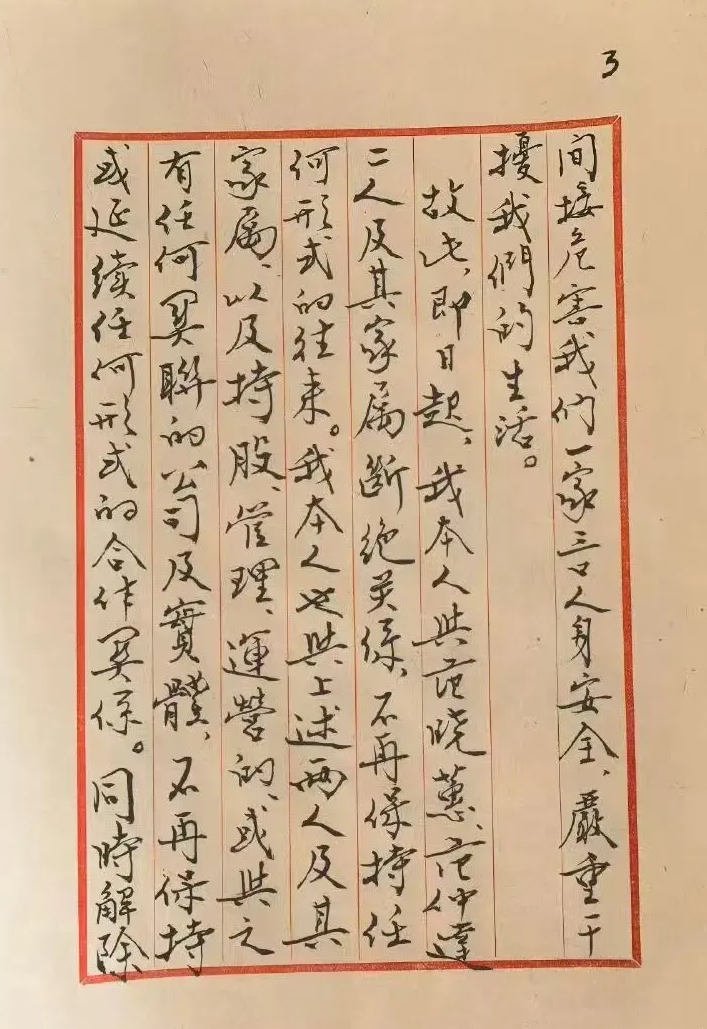 3
间接危害我们一家三口人身安全、嚴重干
擾我們的生活。
故此、即日起、我本人與范晓蕙、范仲達
二人及其家属断绝关係、不再保持任
何形式的往来。我本人也與上述两人及其
家属、以及持股、管理、運营的、或與之
有任何関聯的公司及實體、不再保持
或延續任何形式的合作関係。同時解除